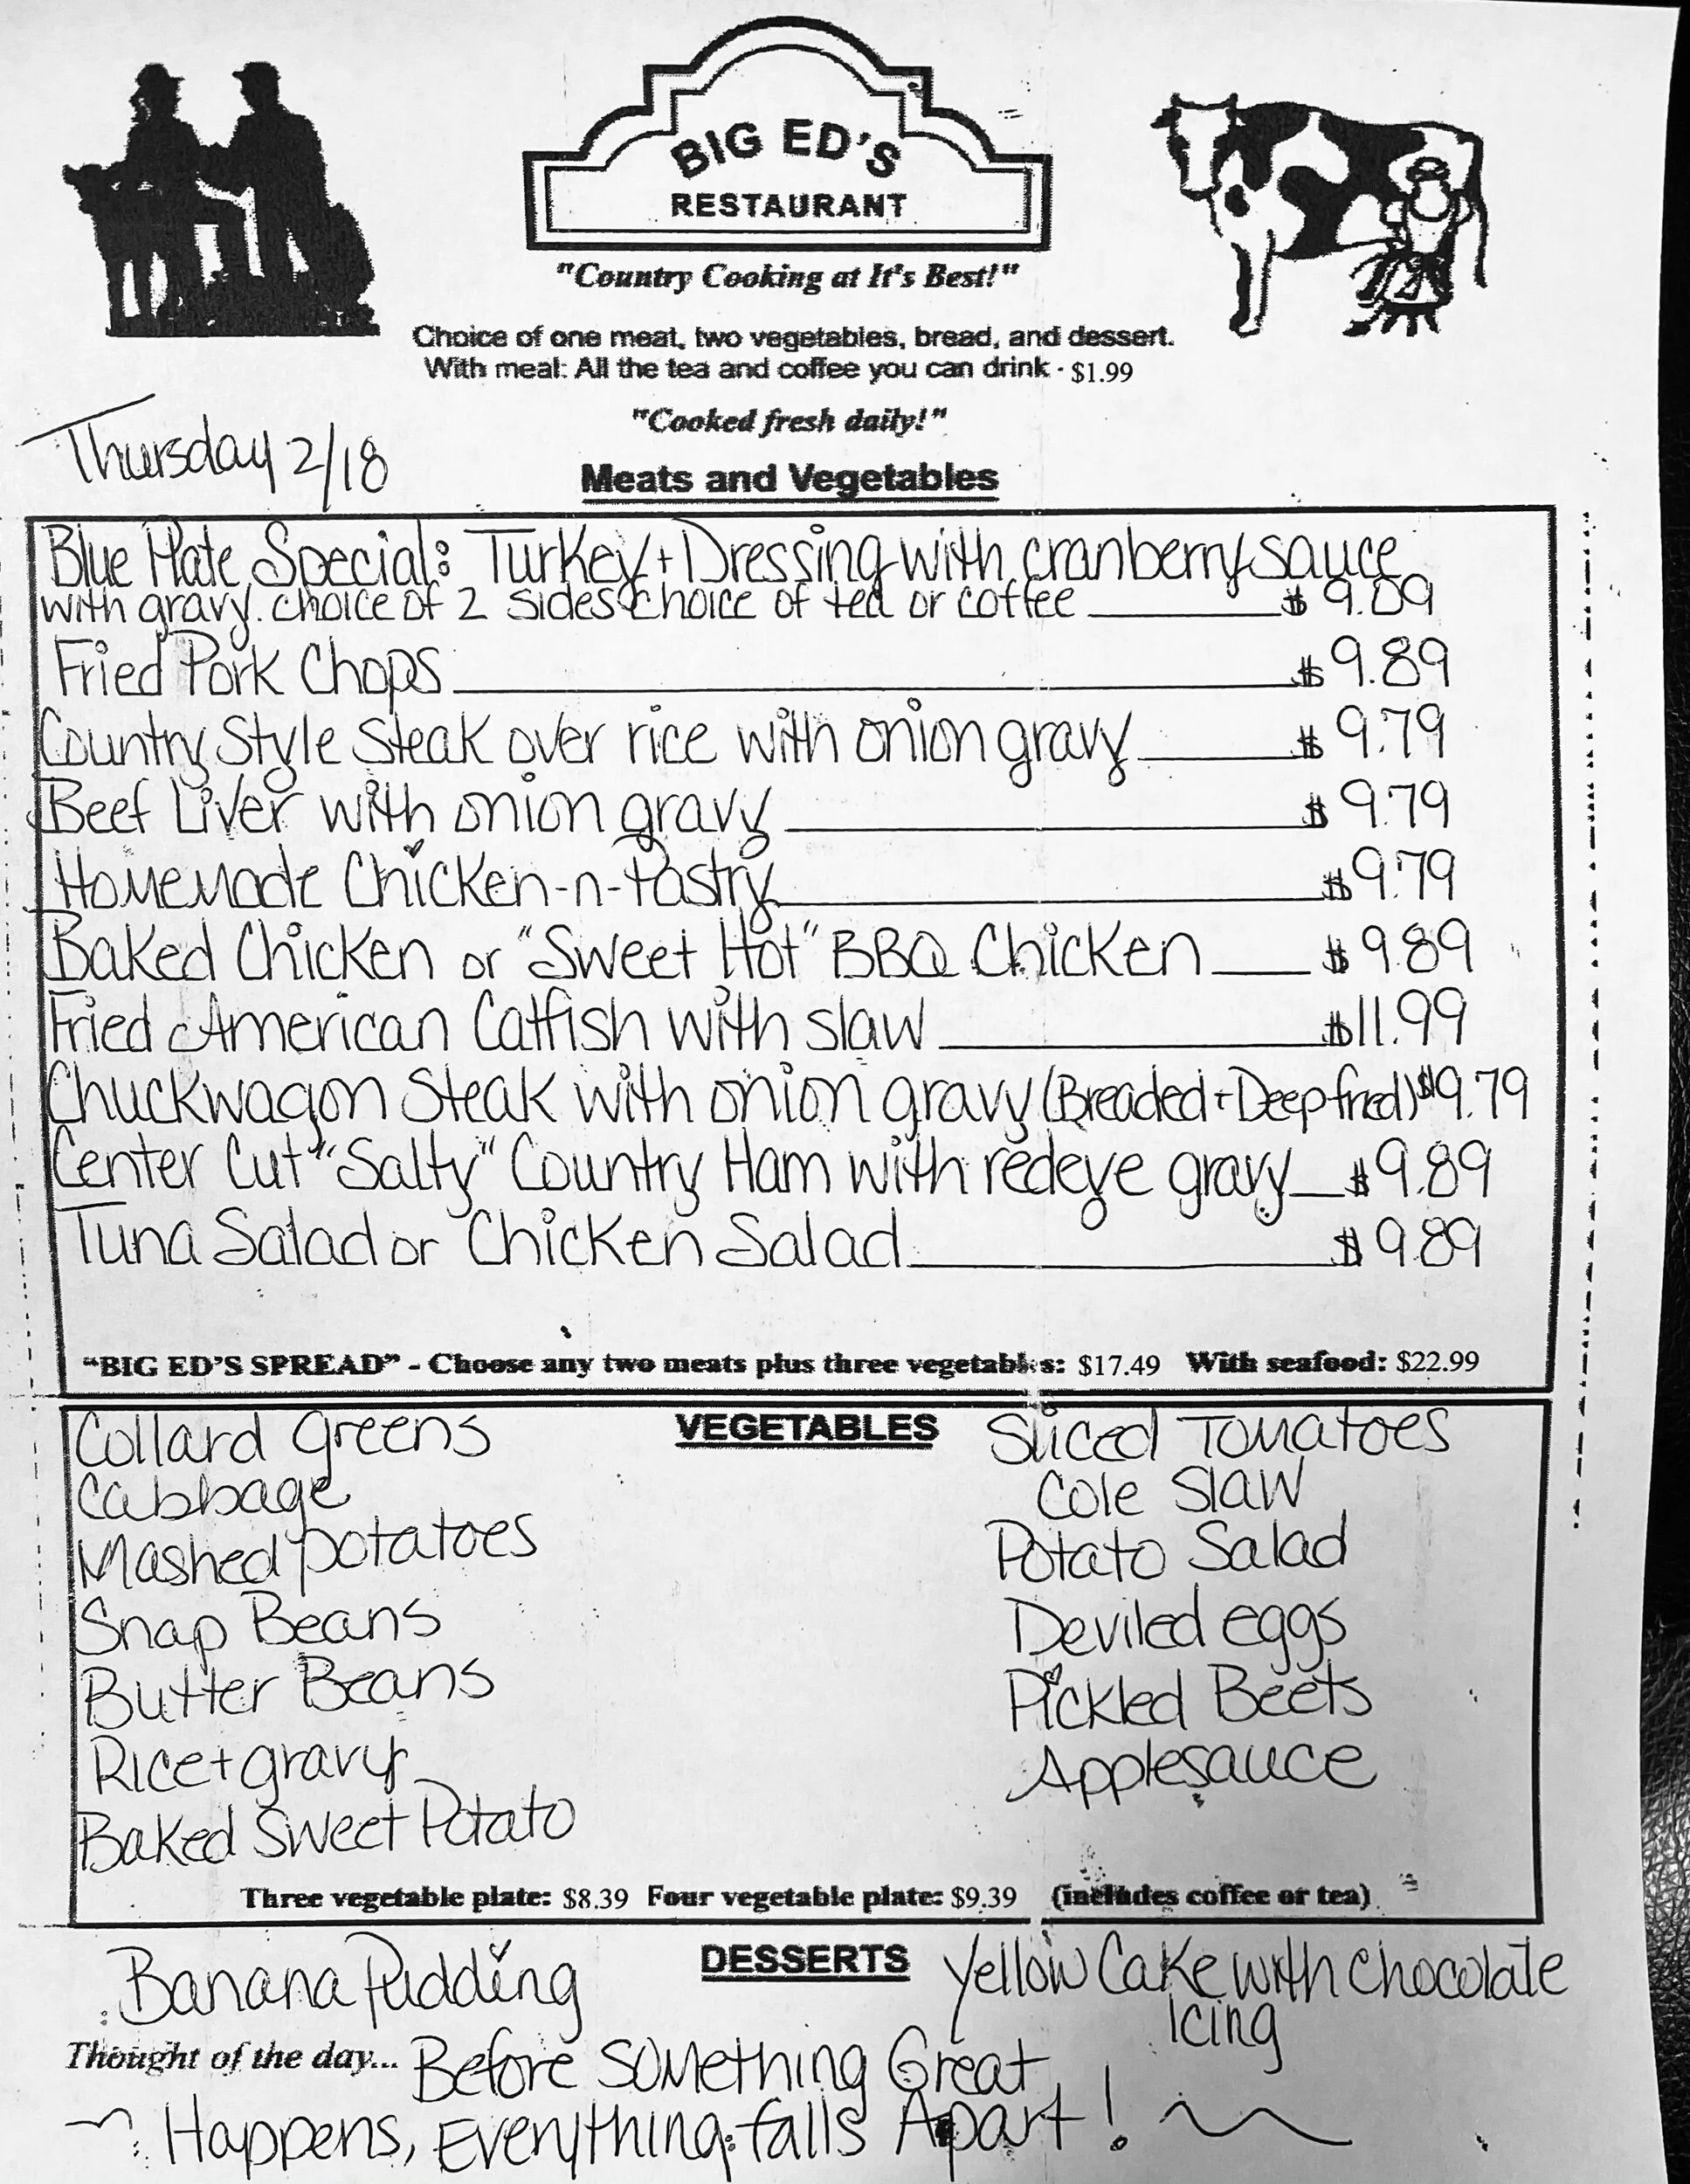 BIG ED'S
RESTAURANT
"Country Cooking at It's Best!"
Choice of one meat, two vegetables, bread, and dessert.
With meal: All the tea and coffee you can drink - $1.99
"Cooked fresh daily!"
Thursday 2/18
Meats and Vegetables
Blue Plate Special: Turkey + Dressing with cranberry sauce
with gravy. choice of 2 sides choice of tea or coffee $ 9.09
Fried Pork Chops $ 9.89
Country Style Steak over rice with onion gravy $ 9.79
Beef Liver with onion gravy $ 9.79
Homemade Chicken-n-Pastry $ 9.79
Baked Chicken or "Sweet Hot" BBQ Chicken $ 9.89
Fried American Catfish with slaw $11.99
Chuckwagon Steak with onion gravy (Breaded + Deep fried) $9.79
Center Cut "Salty" Country Ham with redeye gravy $ 9.89
Tuna Salad or Chicken Salad $ 9.89
"BIG ED'S SPREAD" - Choose any two meats plus three vegetables: $17.49 With seafood: $22.99
VEGETABLES
Collard greens
Cabbage
Mashed potatoes
Snap Beans
Butter Beans
Rice + gravy
Baked Sweet Potato
Sliced Tomatoes
Cole Slaw
Potato Salad
Deviled eggs
Pickled Beets
Applesauce
Three vegetable plate: $8.39 Four vegetable plate: $9.39 (includes coffee or tea)
DESSERTS
Banana Pudding
Yellow Cake with chocolate
Icing
Thought of the day... Before Something Great
Happens, Everything falls Apart!